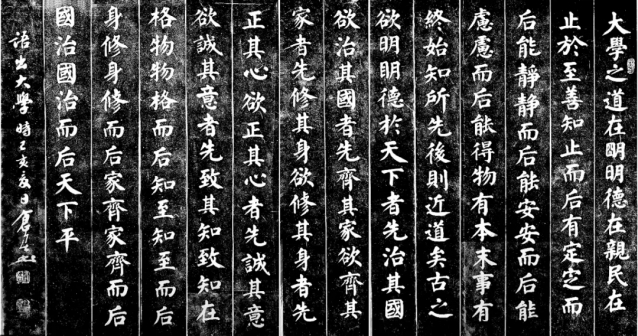 大學之道在明明德在親民在
止於至善知止而后有定定而
后能靜靜而后能安安而后能
慮慮而后能得物有本末事有
終始知所先後則近道矣古之
欲明明德於天下者先治其國
欲治其國者先齊其家欲齊其
家者先修其身欲修其身者先
正其心欲正其心者先誠其意
欲誠其意者先致其知致知在
格物物格而后知至知至而后
身修身修而后家齊家齊而后
國治國治而后天下平
語出大學時己亥夏日